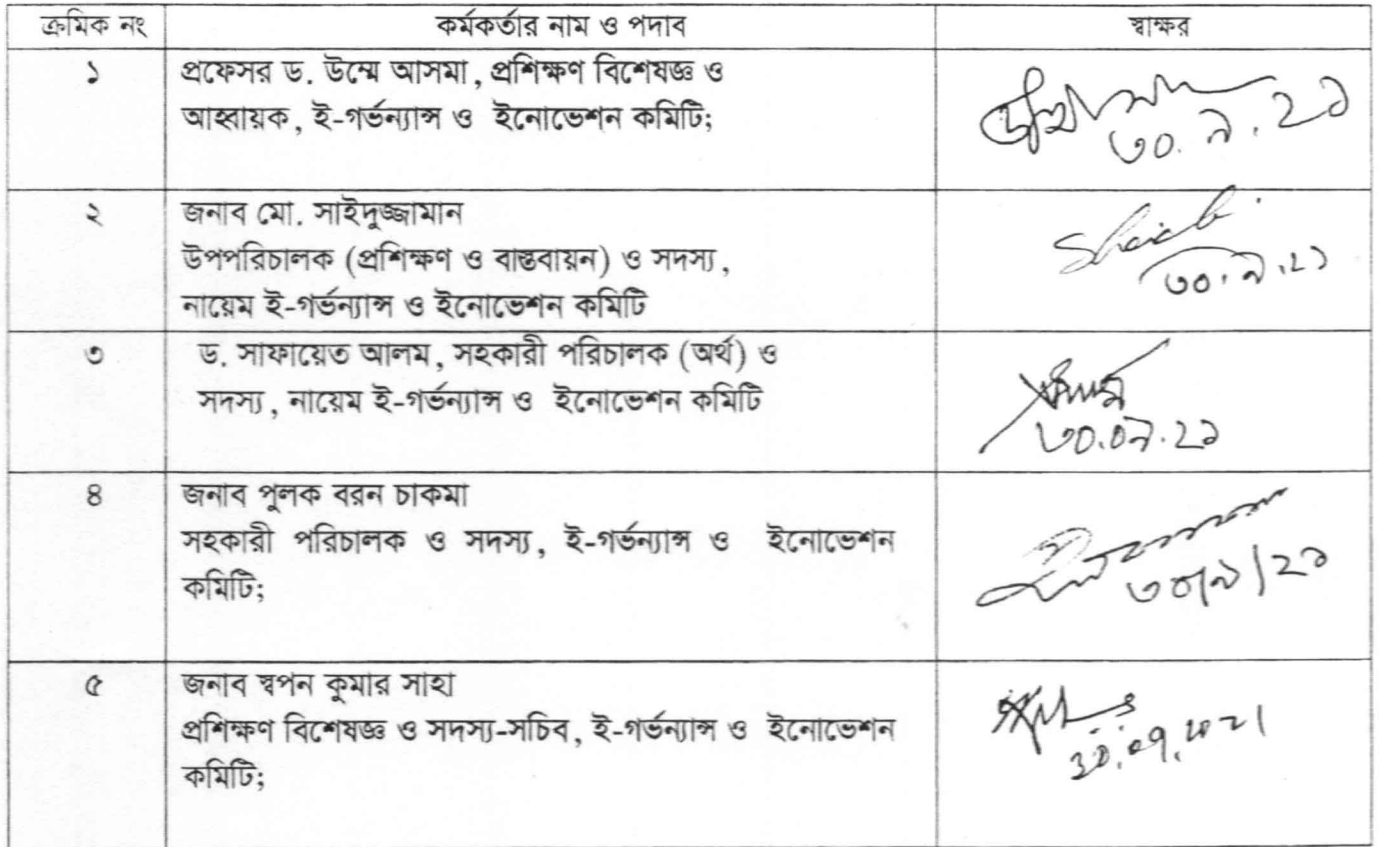 ক্রমিক নং কর্মকর্তার নাম ও পদাব স্বাক্ষর
১ প্রফেসর ড. উম্মে আসমা, প্রশিক্ষণ বিশেষজ্ঞ ও
আহ্বায়ক, ই-গর্ভন্যান্স ও ইনোভেশন কমিটি;
৩০.৯.২১
২ জনাব মো. সাইদুজ্জামান
উপপরিচালক (প্রশিক্ষণ ও বাস্তবায়ন) ও সদস্য,
৩০.৯.২১
নায়েম ই-গর্ভন্যান্স ও ইনোভেশন কমিটি
৩ ড. সাফায়েত আলম, সহকারী পরিচালক (অর্থ) ও
সদস্য, নায়েম ই-গর্ভন্যান্স ও ইনোভেশন কমিটি
৩০.০৯.২১
৪ জনাব পুলক বরন চাকমা
সহকারী পরিচালক ও সদস্য, ই-গর্ভন্যান্স ও ইনোভেশন
কমিটি;
৩০/৯/২১
৫ জনাব স্বপন কুমার সাহা
প্রশিক্ষণ বিশেষজ্ঞ ও সদস্য-সচিব, ই-গর্ভন্যান্স ও ইনোভেশন
কমিটি;
30.09.2021